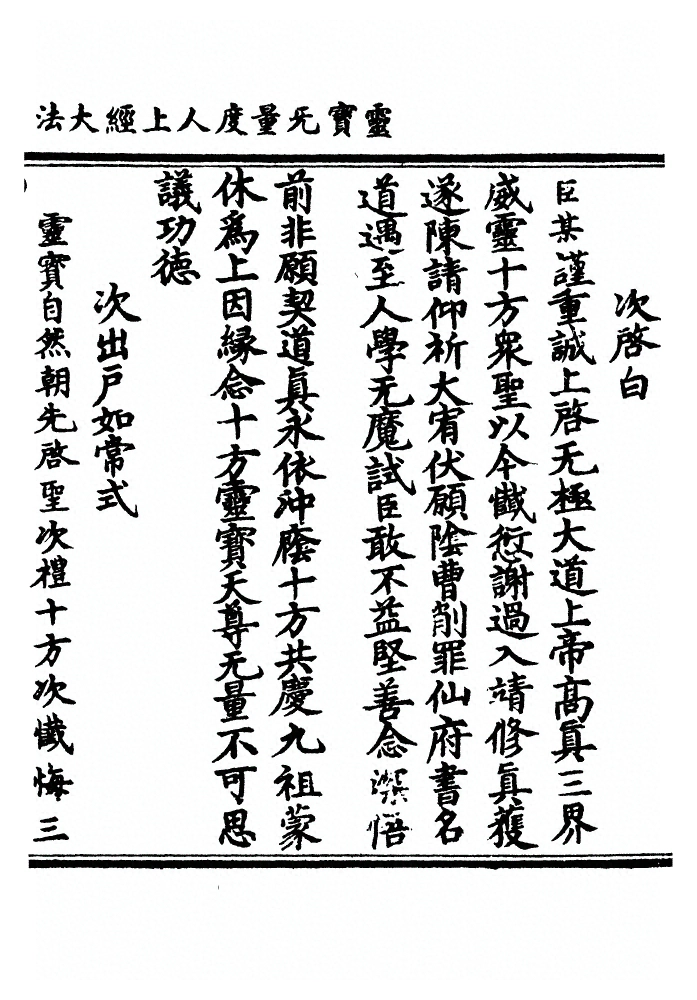 靈寶无量度人上經大法
次啓白
臣某謹重誠上啓无極大道上帝高眞三界
威靈十方衆聖以今懺愆謝過入靖修眞獲
遂陳請仰祈大宥伏願陰曹削罪仙府書名
道遇至人學无魔試臣敢不益堅善念深悟
前非願契道眞永依沖廕十方共慶九祖蒙
休爲上因緣念十方靈寶天尊无量不可思
議功德
次出戶如常式
靈寶自然朝先啓聖次禮十方次懺悔三